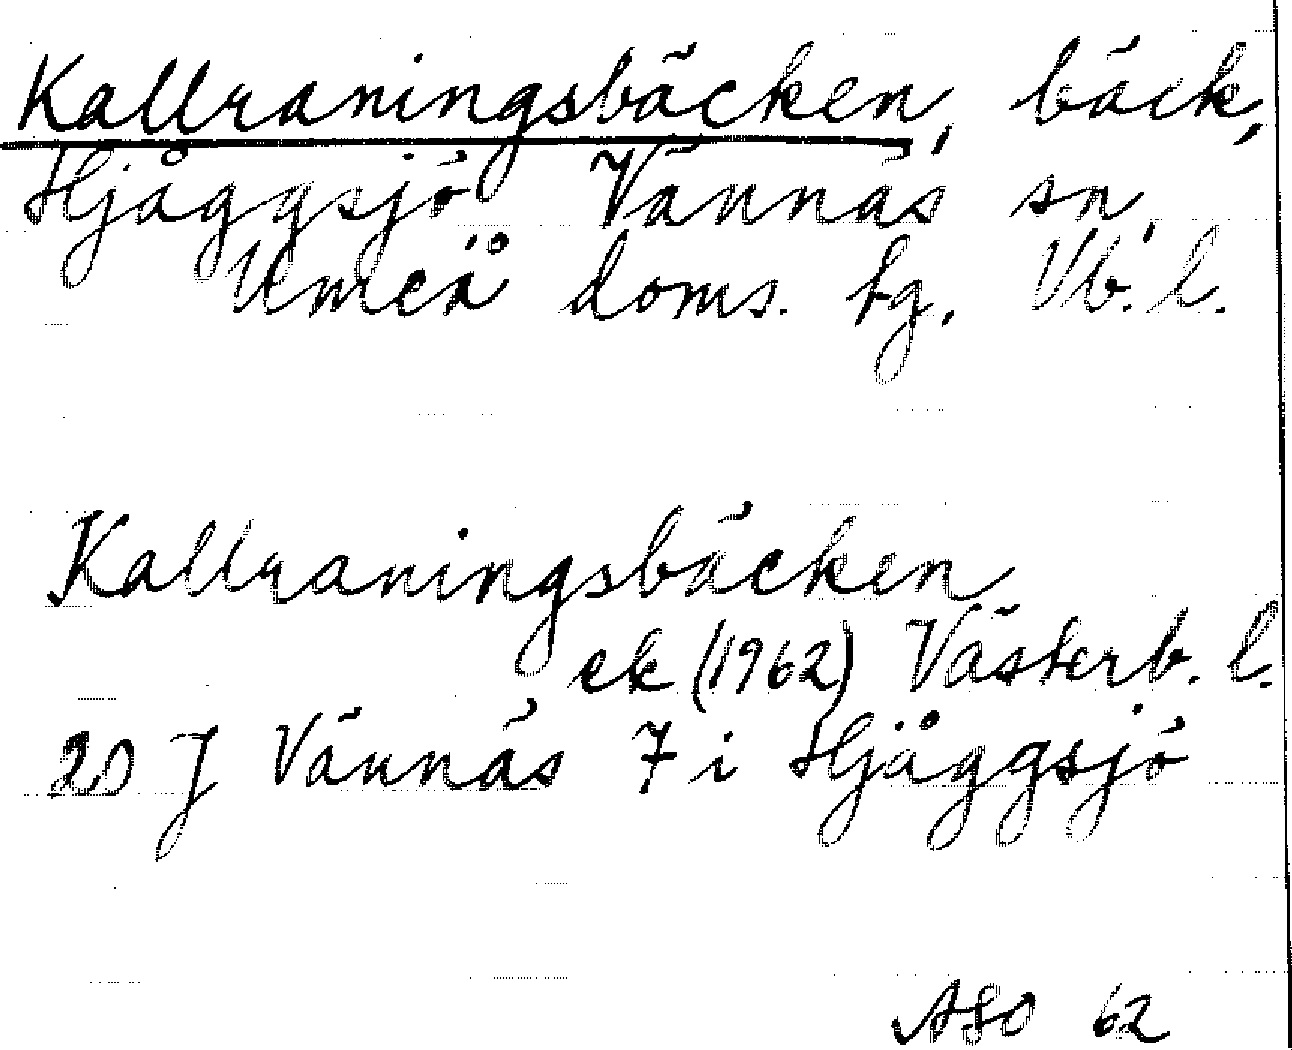 Kallraningsbäcken, bäck,
Hjåggsjö Vännäs sn,
Umeå doms. tg, Vb. l.
Kallraningsbäcken
ek (1962) Västerb. l.
20 J Vännäs 7 i Hjåggsjö
62